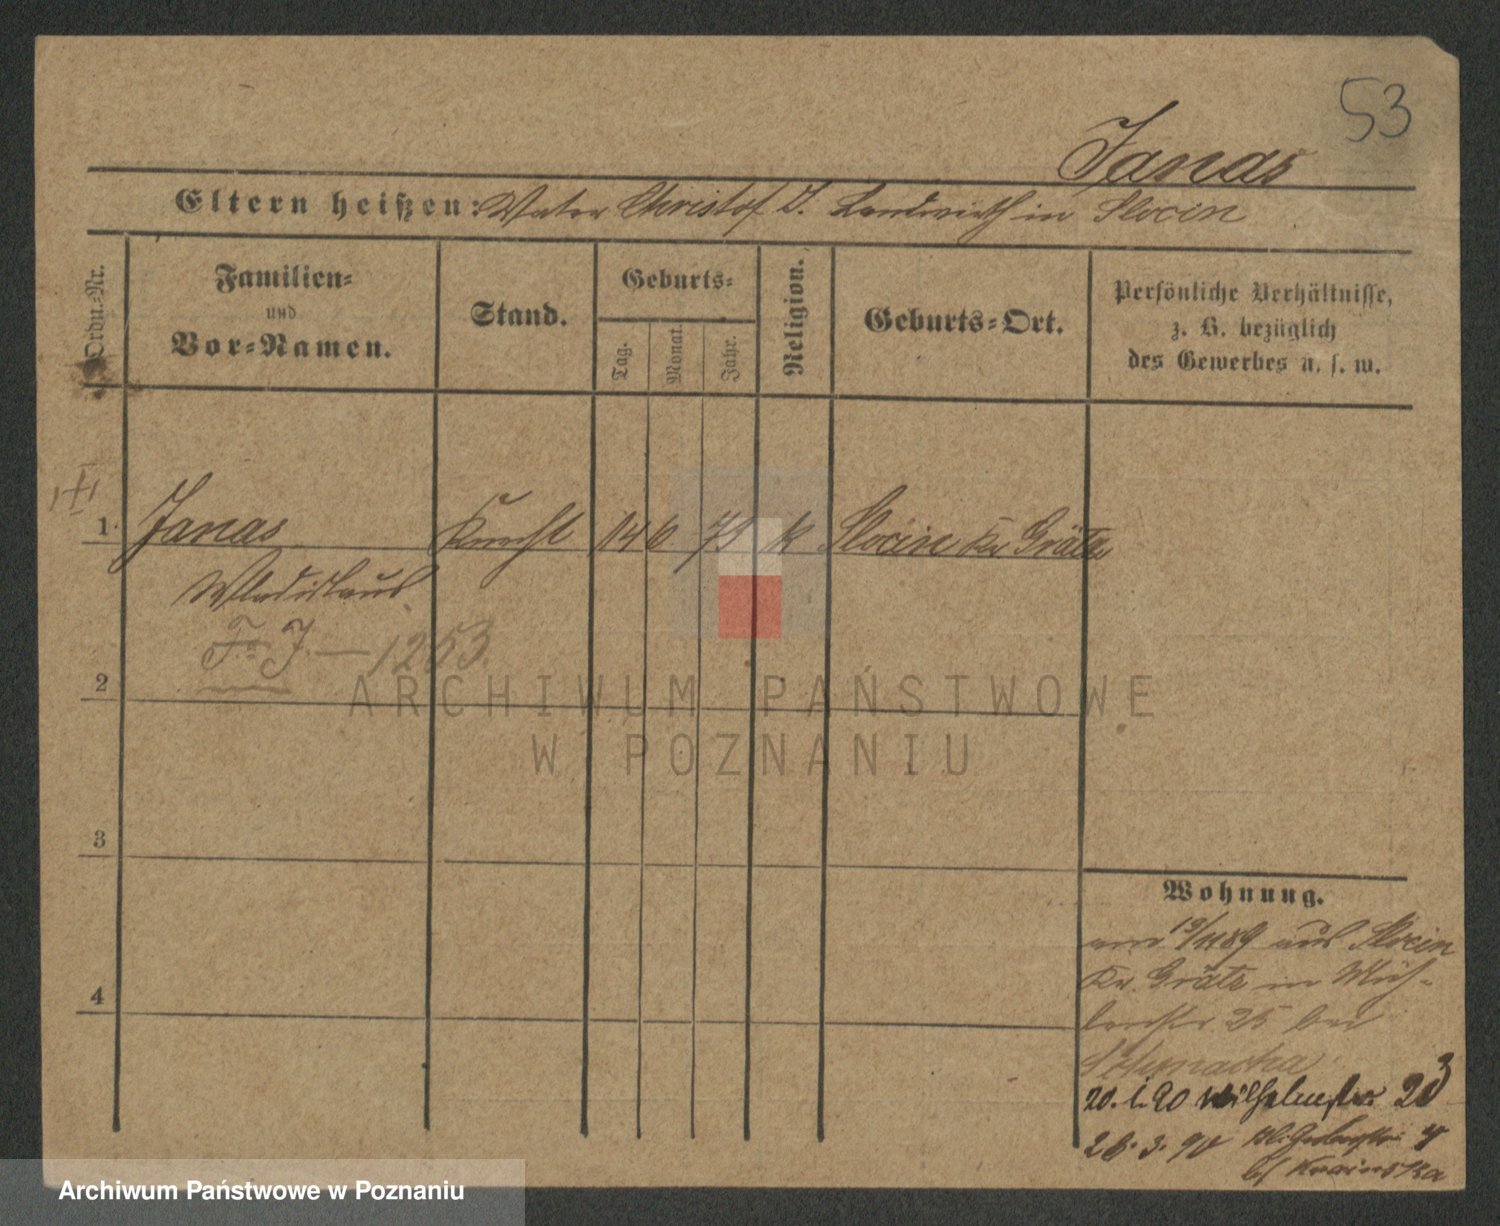 53
Janas
Eltern heißen: Vater Christof J. Landwirth in Slocin
Ordn.-Nr.
Familien-
und
Vor-Namen.
Stand.
Geburts-
Tag.
Monat.
Jahr.
Religion.
Geburts-Ort.
Persönliche Verhältnisse,
z. B. bezüglich
des Gewerbes u. s. w.
1. Janas Knecht 14 6 71 k Slocin Kr Grätz
Wladislaus
F. J. — 1253.
2
ARCHIWUM PAŃSTWOWE
W POZNANIU
3
Wohnung.
am 19/11 89 aus Slocin
4
Kr. Grätz in Müh-
lenstr 25 bei
20. 1. 90 Wilhelmstr. 23
26. 3. 90
b/ Krainska
Archiwum Państwowe w Poznaniu